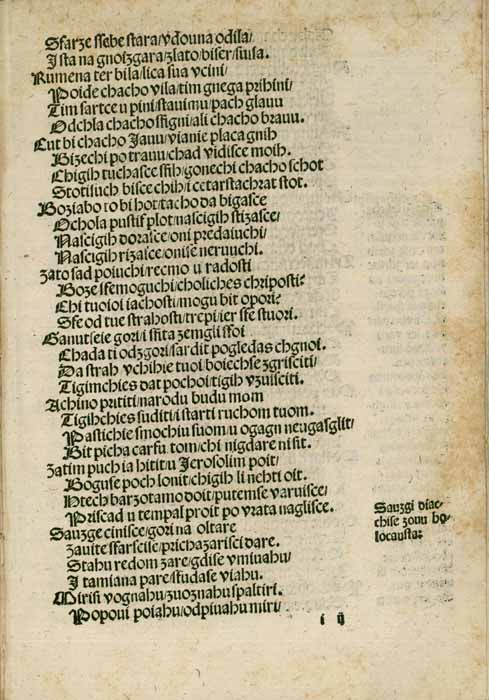 Sfarze ssebe stara/vdouna odila/
Ista na gnoizgara/zlato/biser/suisa.
Rumena ter bila/lica sua vcini/
Poide chacho vila/tim gnega prihini/
Tim sartce upini/stauimu/pach glauu
Odchla chacho sfigni/ali chacho brauu.
Cut bi chacho Jauu/vianie placa gnih
Bizechi po trauu/chad vidisce moih.
Chigih tuchasce sfih/gonechi chacho schot
Stotiluch bisce chih/i cetarstachrat stot.
Boziabo to bi hot/tacho da bigasce
Ochola pustif plot/nascigih stizasce/
Nascigih dorasce/oni predaiuchi/
Nascigih rizasce/onise neruuchi.
Zato sad poiuchi/recmo u radosti
Boze sfemoguchi/choliches chriposti?
Chi tuoioi iachosti/mogu bit opori?
Sfe od tue strahosti/trepi/ier sfe stuori.
Ganutseie gori/i sfita zemgli sfoi
Chada ti odzgori/sardit pogledas chgnoi.
Da strah vchihie tuoi/boiechse zgrisciti/
Tigimchies dat pochoi/tigih vzuisciti.
Achino prititi/narodu budu mom
Tigihchies suditi/i starti ruchom tuom.
Pastichie smochiu suom/u ogagn neugasglit/
Bit picha carfu tom/chi nigdare nisit.
Zatim puch ia hitit/u Jerosolim poit/
Boguse poch lonit/chigih li nehti oit.
Htech barzotamo doit/putemse varuisce/
Priscad u tempal proit po vrata naglisce.
Sauzge cinisce/gori na oltare
Zauite sfarscile/prichazarisci dare.
Stahu redom zare/gdise vmiuahu/
I tamiana pare/sfudase viahu.
Mirisi vognahu/zuoznahu spaltiri.
Popoui poiahu/odpiuahu miri/
Sauzgi diae-
chise zouu ho-
locausta:
i ij